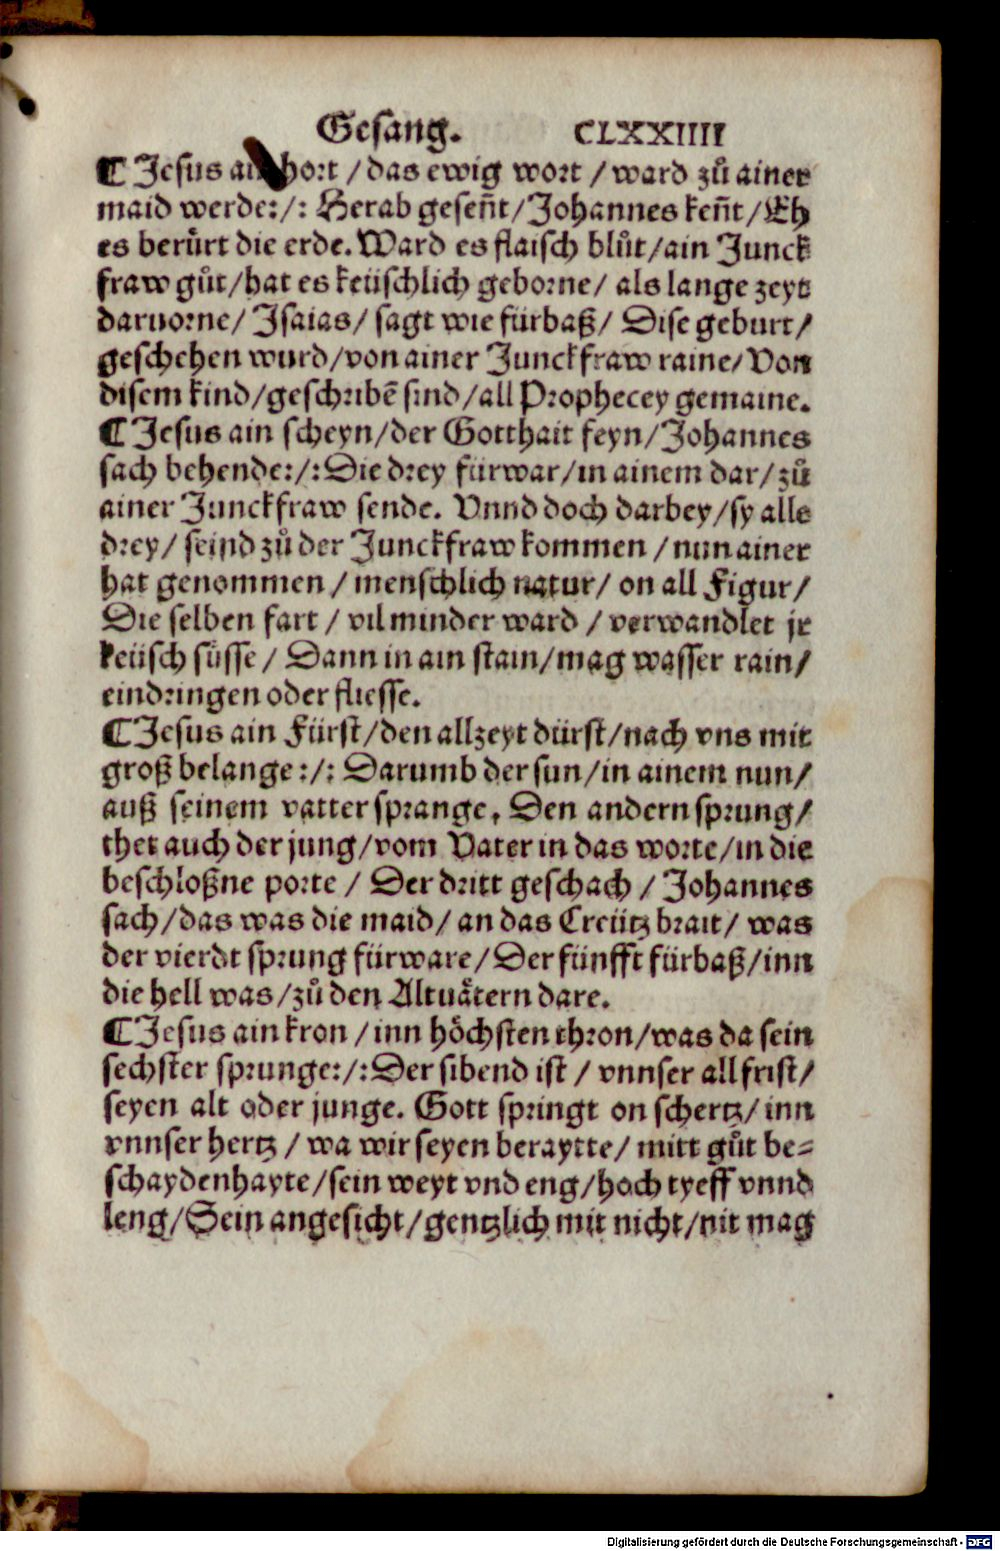 Gesang. CLXXIIII
¶ Jesus ain hort / das ewig wort / ward zuͦ ainer
maid werde:/: Herab geseñt / Johannes keñt / Eh
es beruͤrt die erde. Ward es flaisch bluͦt / ain Junck
fraw guͦt / hat es keüschlich geborne / als lange zeyt
daruorne / Jsaias / sagt wie fürbaß / Dise geburt /
geschehen wurd / von ainer Junckfraw raine / Von
disem kind / geschribē sind / all Prophecey gemaine.
¶ Jesus ain scheyn / der Gotthait feyn / Johannes
sach behende:/: Die drey fürwar / in ainem dar / zuͦ
ainer Junckfraw sende. Vnnd doch darbey / sy alle
drey / seind zuͦ der Junckfraw kommen / nun ainer
hat genommen / menschlich natur / on all Figur /
Die selben fart / vil minder ward / verwandlet jr
keüsch süsse / Dann in ain stain / mag wasser rain /
eindringen oder fliesse.
¶ Jesus ain Fürst / den allzeyt dürst / nach vns mit
groß belange:/: Darumb der sun / in ainem nun /
auß seinem vatter sprange. Den andern sprung /
thet auch der jung / vom Vater in das worte / in die
beschloßne porte / Der dritt geschach / Johannes
sach / das was die maid / an das Creütz brait / was
der vierdt sprung fürware / Der fünfft fürbaß / inn
die hell was / zuͦ den Altuaͤtern dare.
¶ Jesus ain kron / inn hoͤchsten thron / was da sein
sechster sprunge:/: Der sibend ist / vnnser all frist /
seyen alt oder junge. Gott springt on schertz / inn
vnnser hertz / wa wir seyen beraytte / mitt guͦt be⸗
schaydenhayte / sein weyt vnd eng / hoch tyeff vnnd
leng / Sein angesicht / gentzlich mit nicht / nit mag
Digitalisierung gefördert durch die Deutsche Forschungsgemeinschaft - DFG